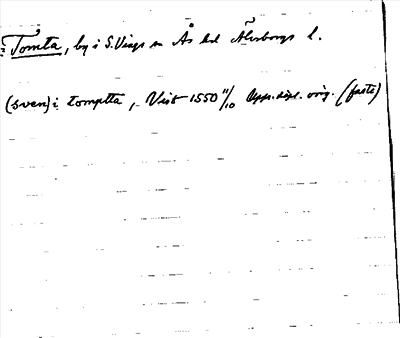 Tomta, by i S. Vings sn Ås hd Älvsborgs l.
(sven) i tomptta, Visb 1550 11/10 Upps. dipl. orig. (faste)